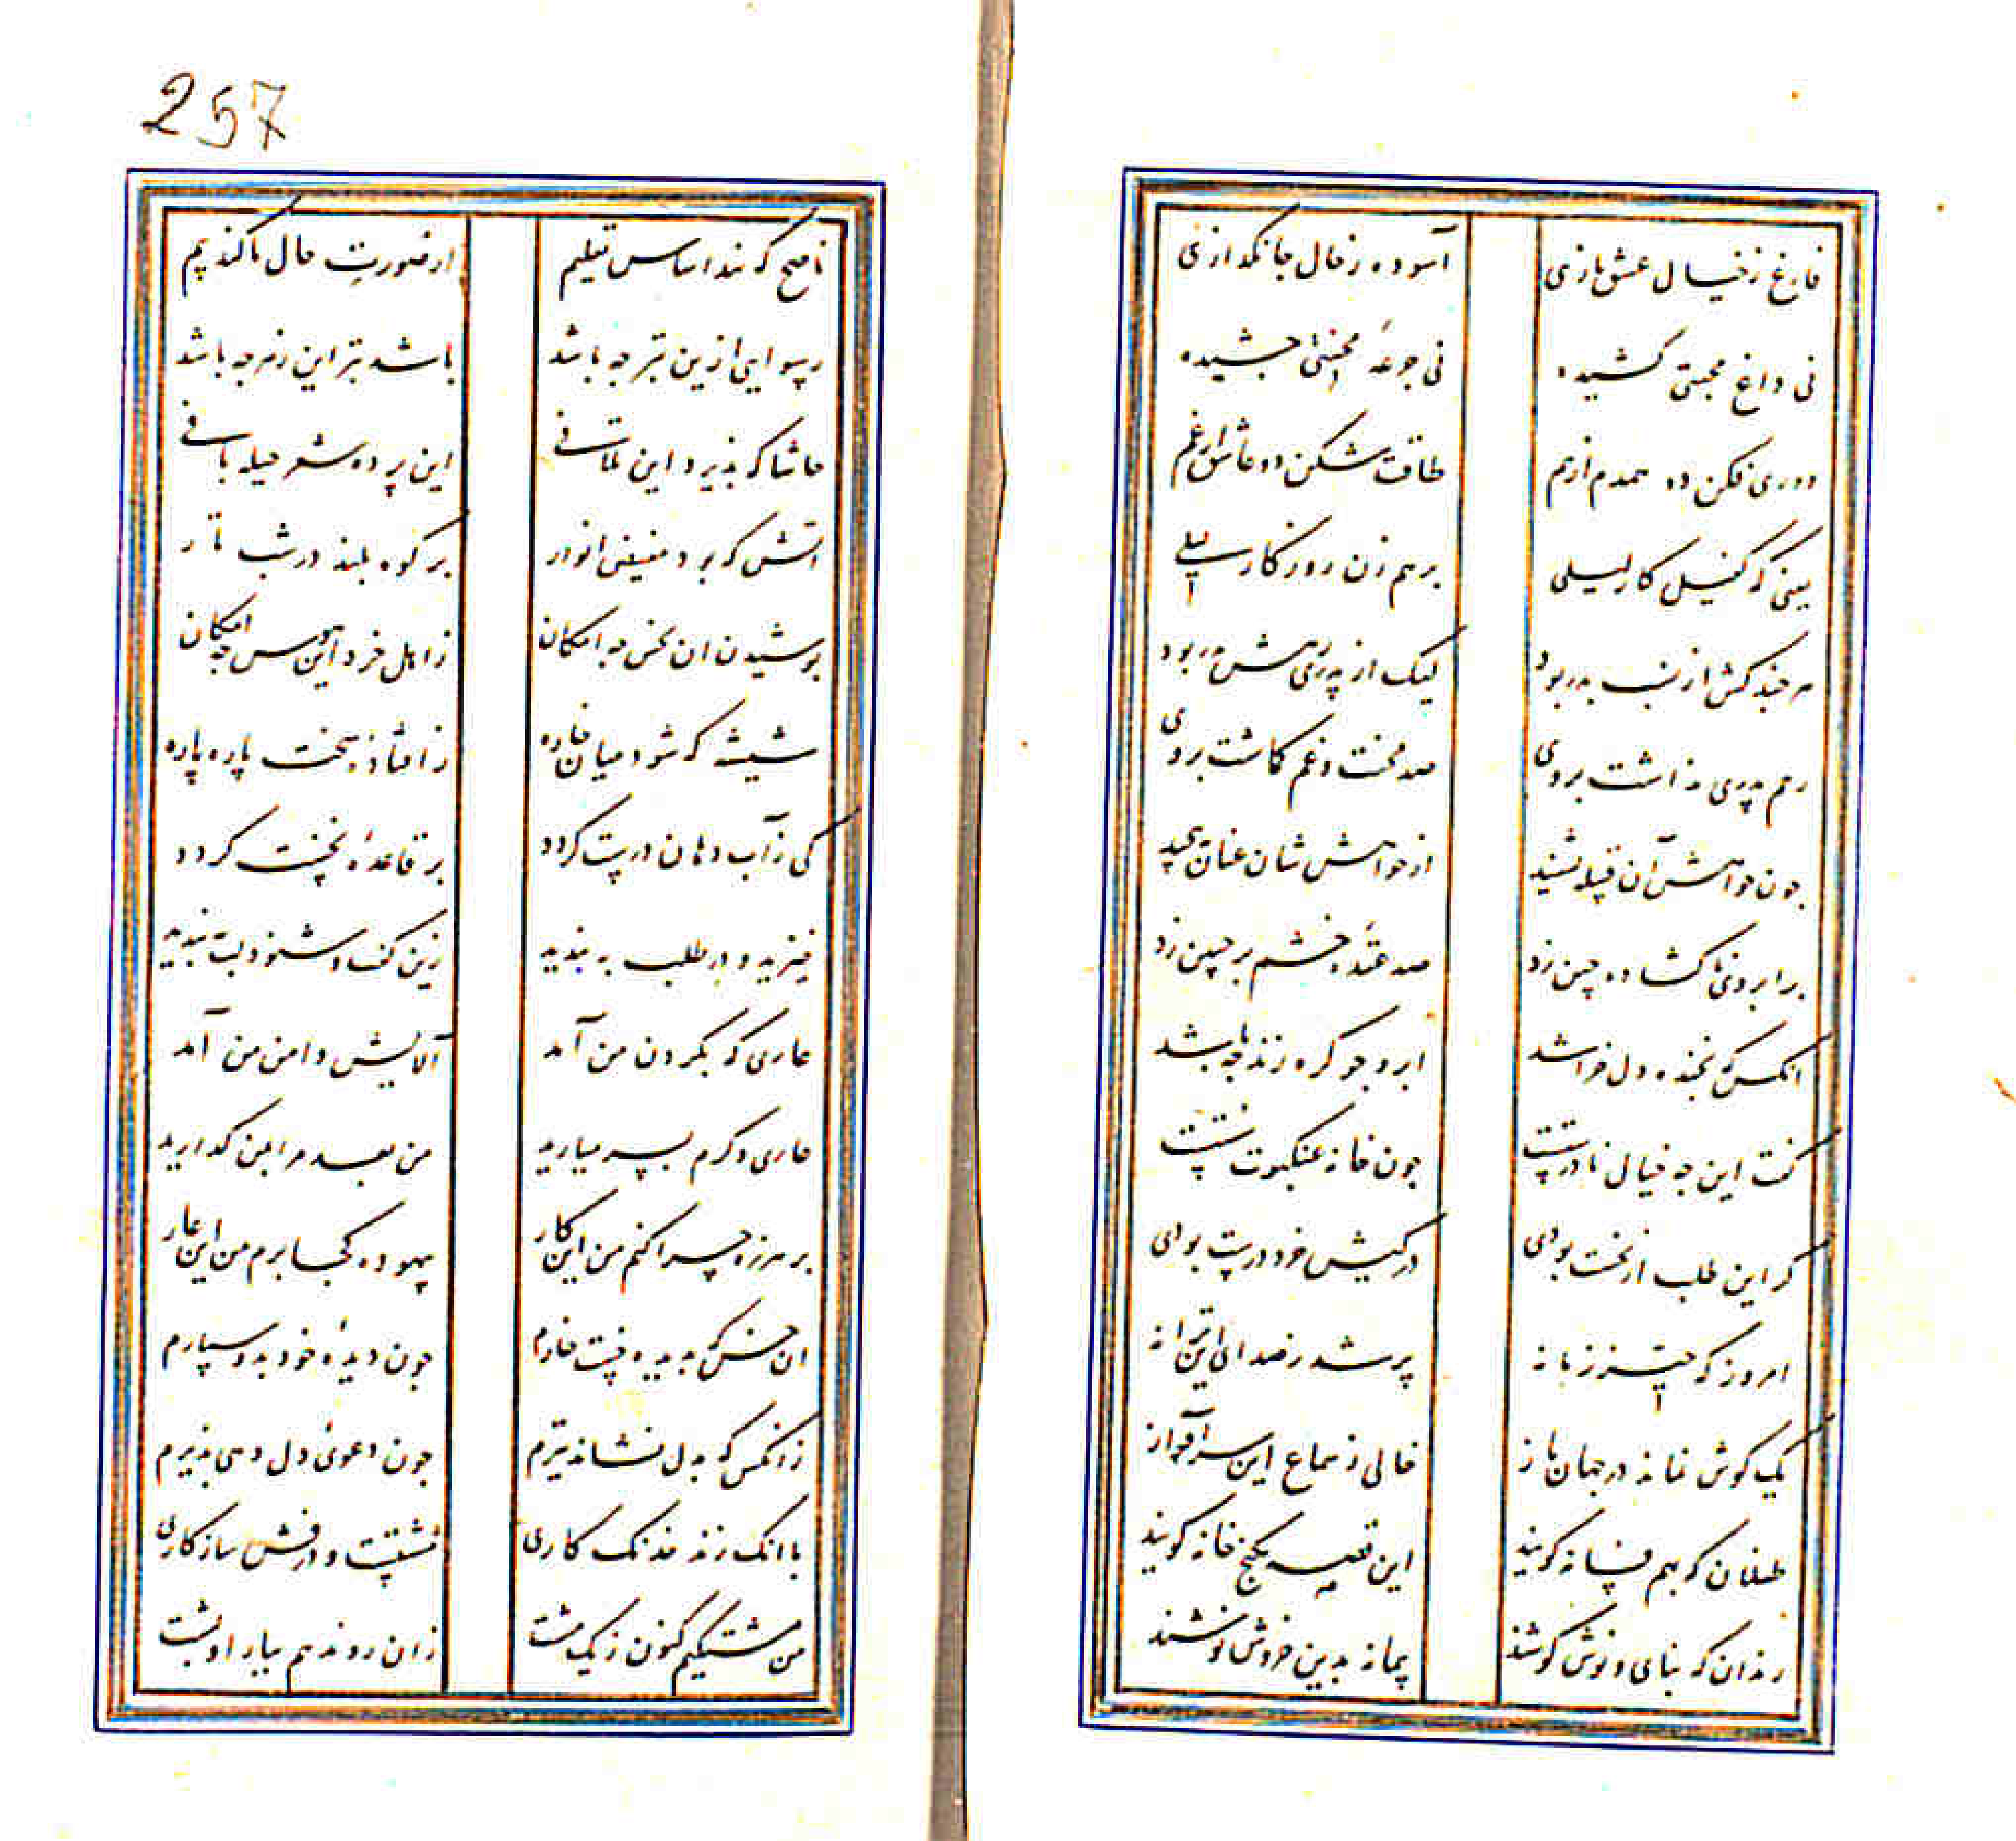 257
فارغ ز خیال عشق بازی آسوده ز حال جانگدازی
نی داغ محبتی کشیده نی جرعهٔ محنتی چشیده
دوری فکن دو همدم از هم طاقت شکن دو عاشق از غم
یعنی که کفیل کار لیلی برهم زن روزگار لیلی
هر چند کش از نسب پدر بود لیک از پدریش بود
رحم پدری نداشت بروی صد محنت و غم گماشت بروی
چون خواهش آن قبیله بشنید از خواهش شان عنان بپیچید
بر ابروی ناگشاده چین زد صد عقدهٔ خشم بر جبین زد
انکس که بخنده دل خراشد ابرو چو گره زند چه باشد
گفت این چه خیال نادرست چون خانه عنکبوت سستست
گر این طلب از نخست بودی در کیش خرد درست بودی
امروز که زمانه پر شد ز صدای این ترانه
یک گوش نماند در جهان باز خالی ز سماع این سرآواز
طفلان که بهم فسانه گویند این قصه بکنج خانه گویند
رندان که بنای و نوش کوشند پیمانه بدین خروش نوشند
ناصح که نهد اساس تعلیم از صورت حال ما کند بیم
رسوایی ازین بتر چه باشد باشد بتر این دگر چه باشد
حاشا که پذیرد این تلافی این پرده شعر حیله بافی
آتش که بود بر کوه بلند در شب تار
پوشیدن آن بخس چه امکان ز اهل خرد این هوس چه امکان
شیشه که شود میان خاره ز افتادن سخت پاره پاره
کی ز آب دهان درست گردد بر قاعدهٔ نخست گردد
خیزید و در طلب به بندید زین گفت و شنود لب ببندید
عاری که بگردن من آمد آلایش دامن من آمد
عاری دگرم بسر میارید من بعد مرا بمن گذارید
بر هرزه چرا کنم من این کار بیهوده کجا برم من این عار
آن خس که بدیده خست خارم چون دیدهٔ خود بدو سپارم
زانکس که بدل نشاند تیرم چون دعوی دل دهی پذیرم
با آنک زند خدنگ کاری نشست و درفش سازگاری
من مشتکیم کنون ز یک مشت زان روند هم بیار او پشت